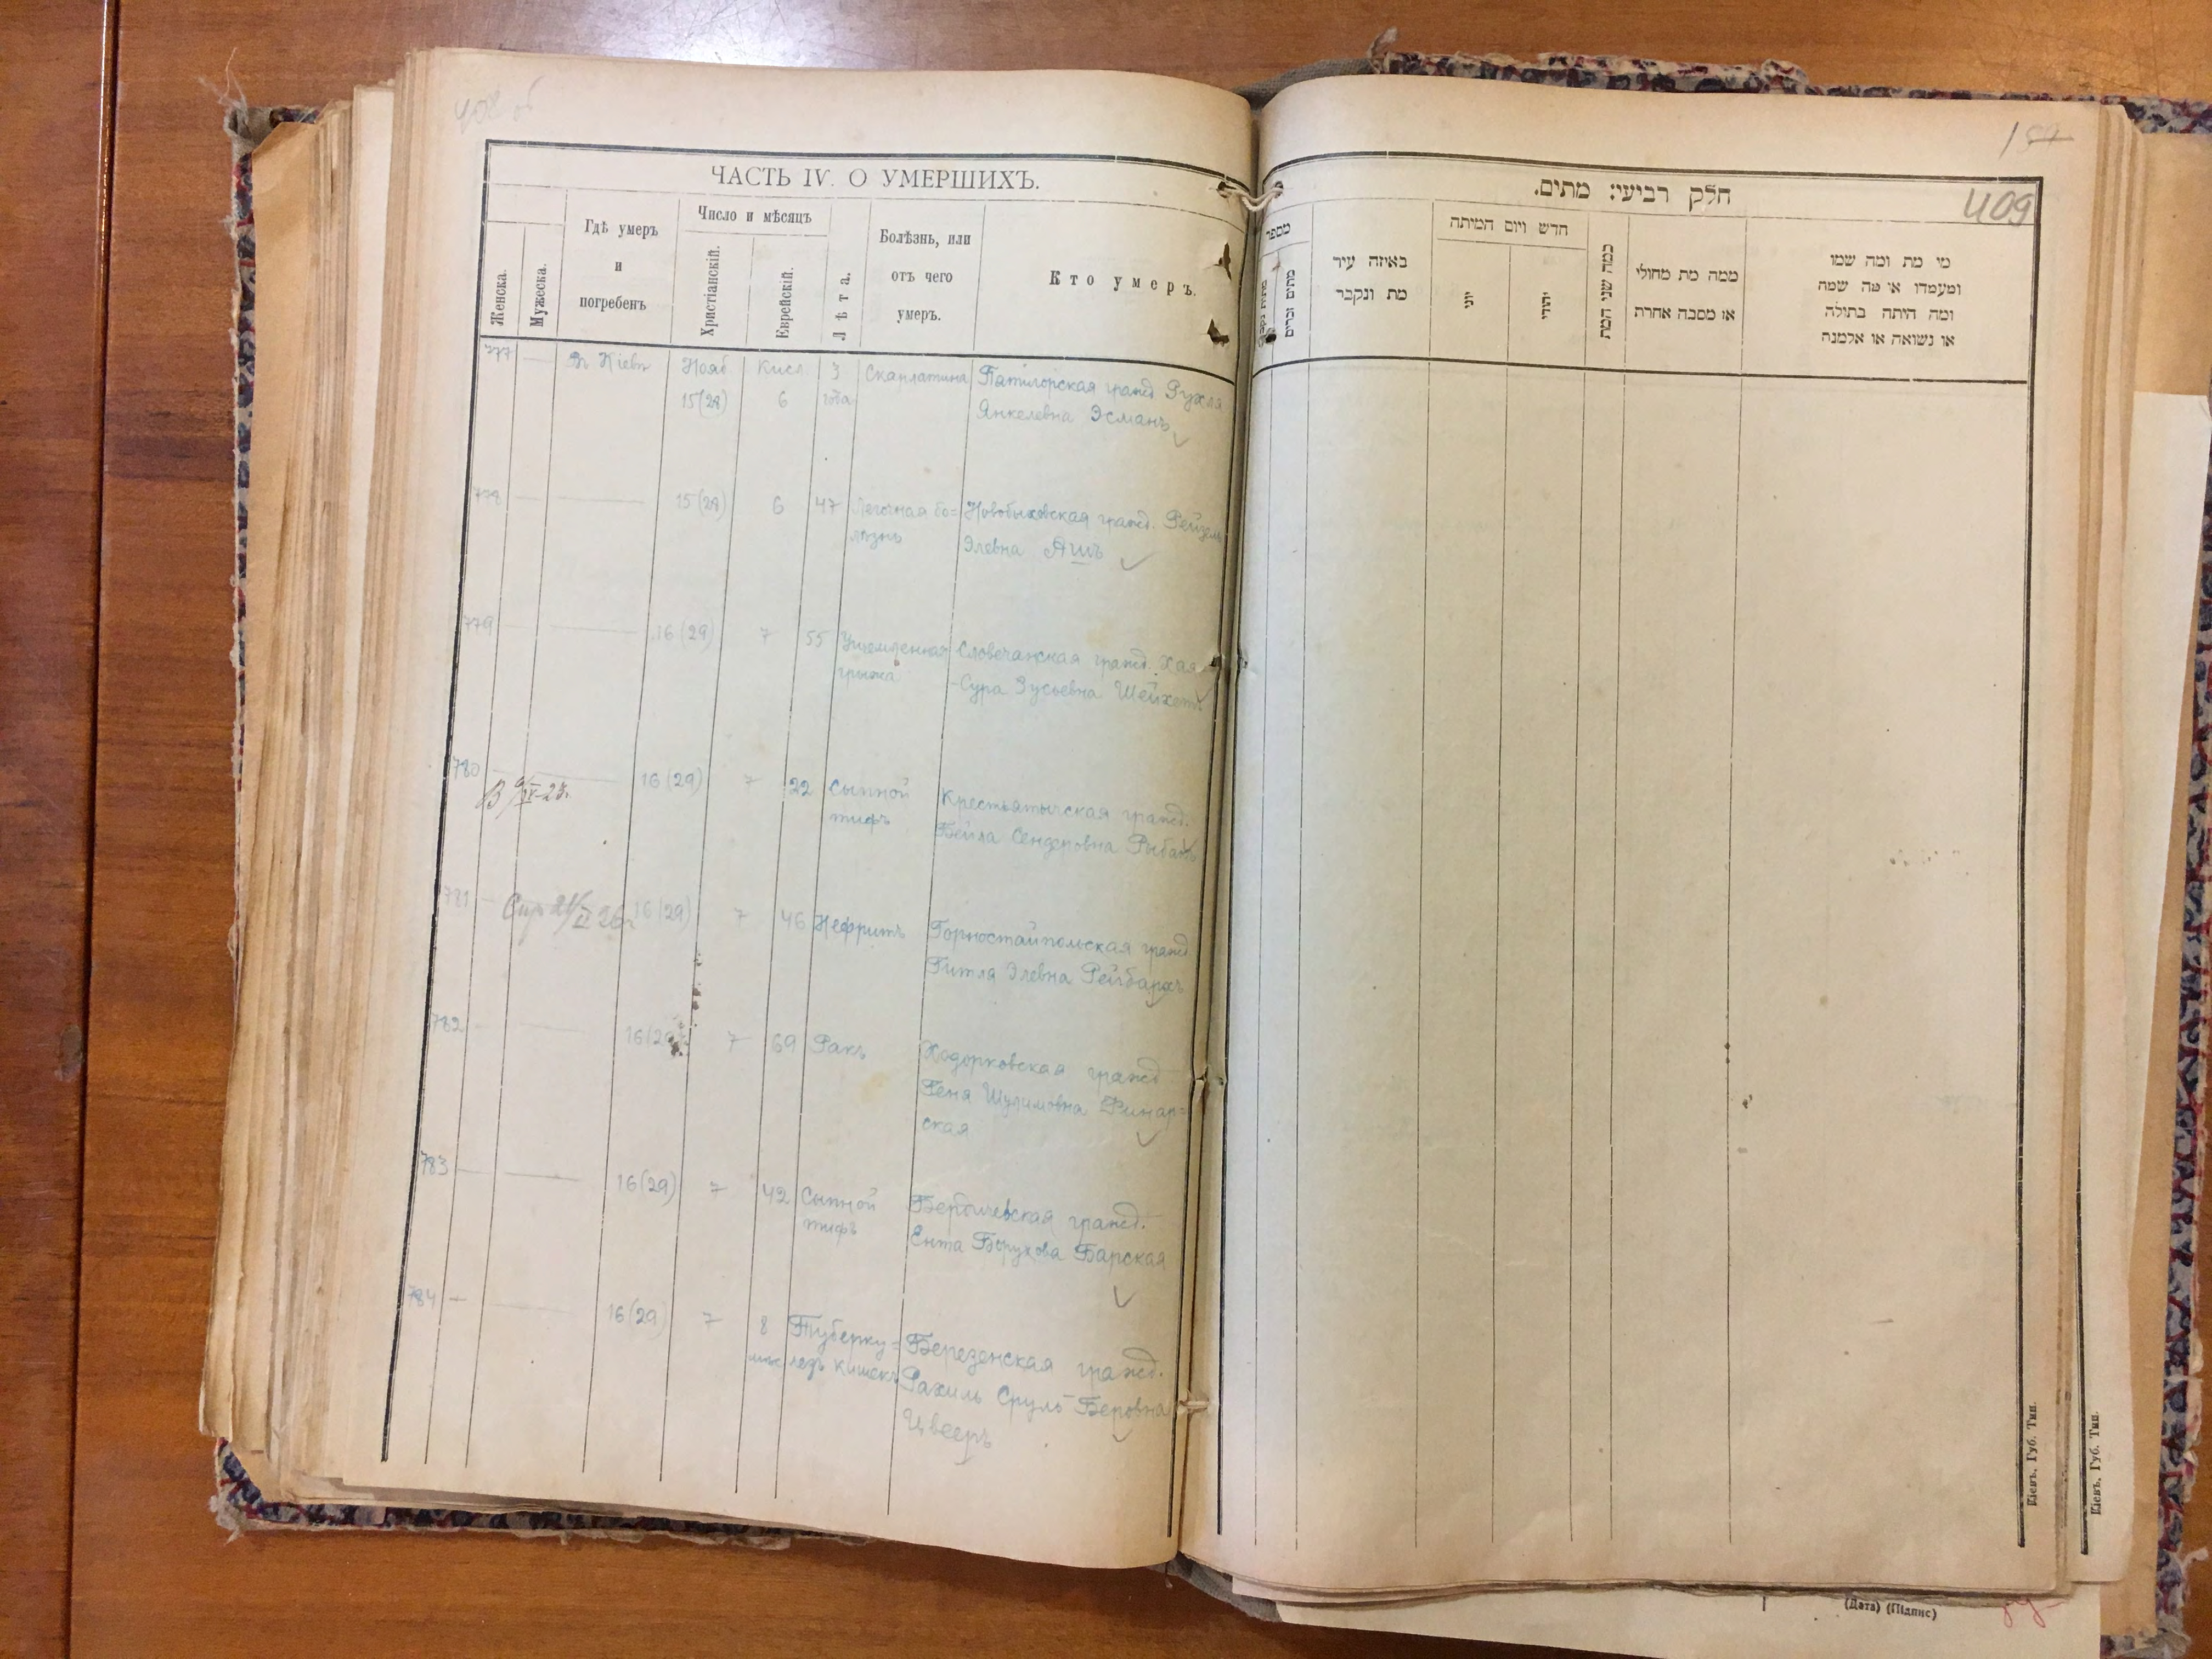 408 об
ЧАСТЬ IV. О УМЕРШИХЪ.
Женска.
Мужеска.
Гдѣ умеръ
и
погребенъ
Число и мѣсяцъ
Христіанскій.
Еврейскій.
Лѣта.
Болѣзнь, или
отъ чего
умеръ.
Кто умеръ.
777 — Въ Кіевѣ Нояб Кисл 3 Скарлатина Пятигорская гражд. Рухля
15(28) 6 года Янкелевна Эсманъ
778 — — 15(28) 6 47 Легочная бо= Новобыховская гражд. Рейзель
лѣзнь Элевна Яшъ
779 — — 16(29) 7 55 Ущемленная Словечанская гражд. Хая
грыжа -Сура Зусьевна Шейхетъ
780 — 16(29) 7 22 Сыпной гражд.
тифъ Бейла Сендеровна
781 — 16(29) 7 46 Нефритъ Горностайпольская гражд
Гитля Элевна Рейбархъ
782 — 16(29) 7 69 Ракъ Ходорковская гражд
Геня Шулимовна Финар=
ская
783 — — 16(29) 7 42 Сыпной Бердичевская гражд.
тифъ Ента Борухова Барская
784 — — 16(29) 7 8 Туберку= Березенская гражд.
мѣс лезъ кишекъ Рахиль Сруль-Беровна
Цвееръ
409
חלק רביעי: מתים.
מספר
מתים זכרים
באיזה עיר
מת ונקבר
חדש ויום המיתה
יוני
יהודי
כמה שני המת
ממה מת מחולי
או מסבה אחרת
מי מת ומה שמו
ומעמדו או מה שמה
ומה היתה בתולה
או נשואה או אלמנה
Кіевъ, Губ. Тип.
Кіевъ, Губ. Тип.
(Дата) (Підпис)